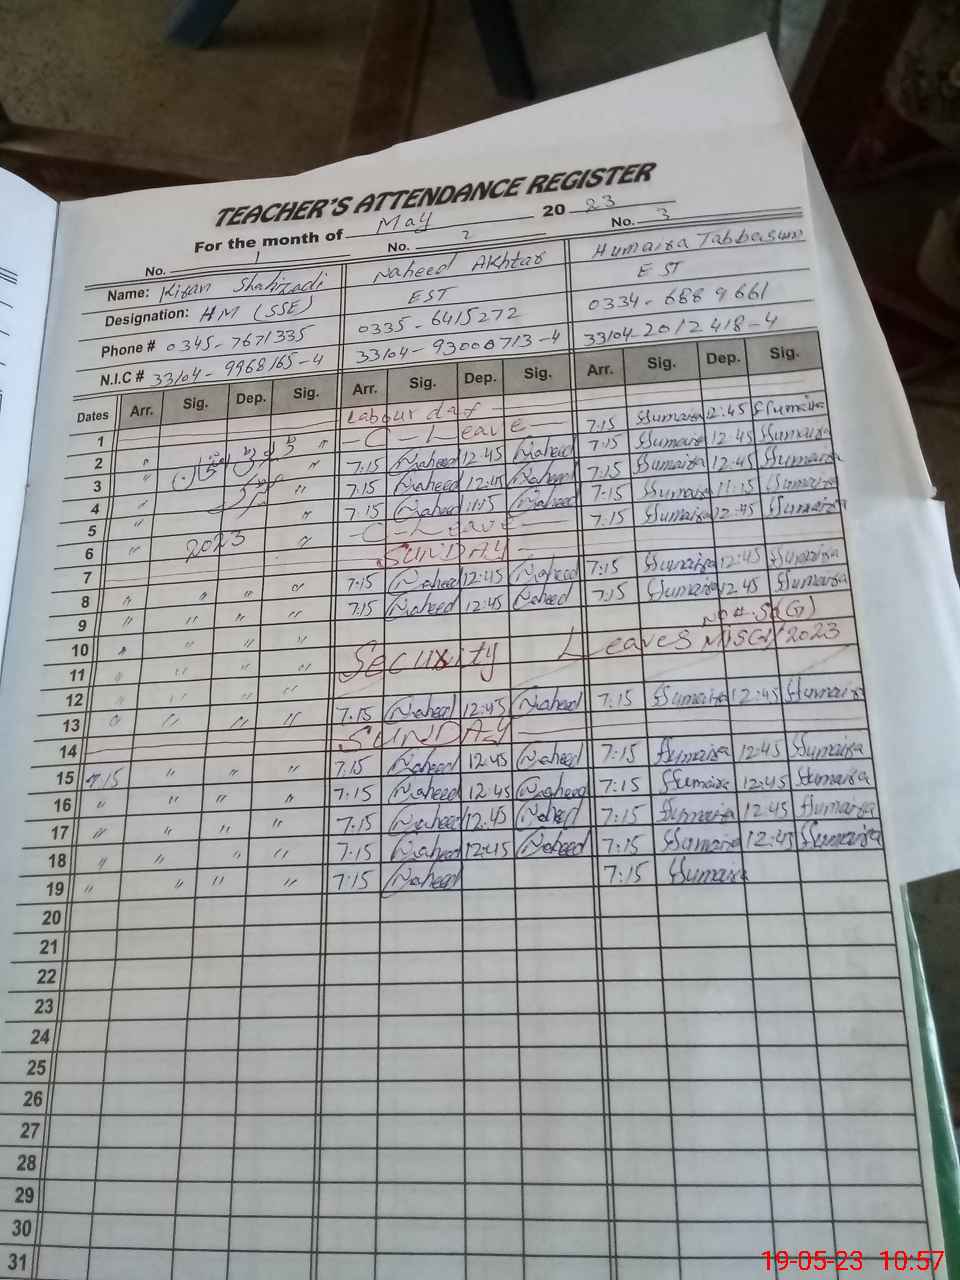 TEACHER'S ATTENDANCE REGISTER
For the month of May 20 23
No. 1 No. 2 No. 3
Name: Kiran Shahzadi Naheed Akhtar Humaira Tabbasum
Designation: HM (SSE) EST EST
Phone # 0345-7671335 0335-6415272 0334-6889661
N.I.C # 33104-9968165-4 33104-93000713-4 33104-2012418-4
Dates Arr. Sig. Dep. Sig. Arr. Sig. Dep. Sig. Arr. Sig. Dep. Sig.
1 Labour day
2 " " C-Leave 7:15 Humaira 12:45 Humaira
3 " " 7:15 Naheed 12:45 Naheed 7:15 Humaira 12:45 Humaira
4 " " 7:15 Naheed 12:45 Naheed 7:15 Humaira 12:45 Humaira
5 " 7:15 Naheed 11:15 Naheed 7:15 Humaira 11:15 Humaira
6 " 2023 " C-Leave 7:15 Humaira 12:45 Humaira
7 SUNDAY
8 " " " " 7:15 Naheed 12:45 Naheed 7:15 Humaira 12:45 Humaira
9 " " " " 7:15 Naheed 12:45 Naheed 7:15 Humaira 12:45 Humaira
10 " " " "
11 " " " " Security Leaves MISC/1/2023
12 " " " "
13 " " " " 7:15 Naheed 12:45 Naheed 7:15 Humaira 12:45 Humaira
14 SUNDAY
15 7:15 " " " 7:15 Naheed 12:45 Naheed 7:15 Humaira 12:45 Humaira
16 " " " " 7:15 Naheed 12:45 Naheed 7:15 Humaira 12:45 Humaira
17 " " " " 7:15 Naheed 12:45 Naheed 7:15 Humaira 12:45 Humaira
18 " " " " 7:15 Naheed 12:45 Naheed 7:15 Humaira 12:45 Humaira
19 " " " " 7:15 Naheed 7:15 Humaira
20
21
22
23
24
25
26
27
28
29
30
31
19-05-23 10:57